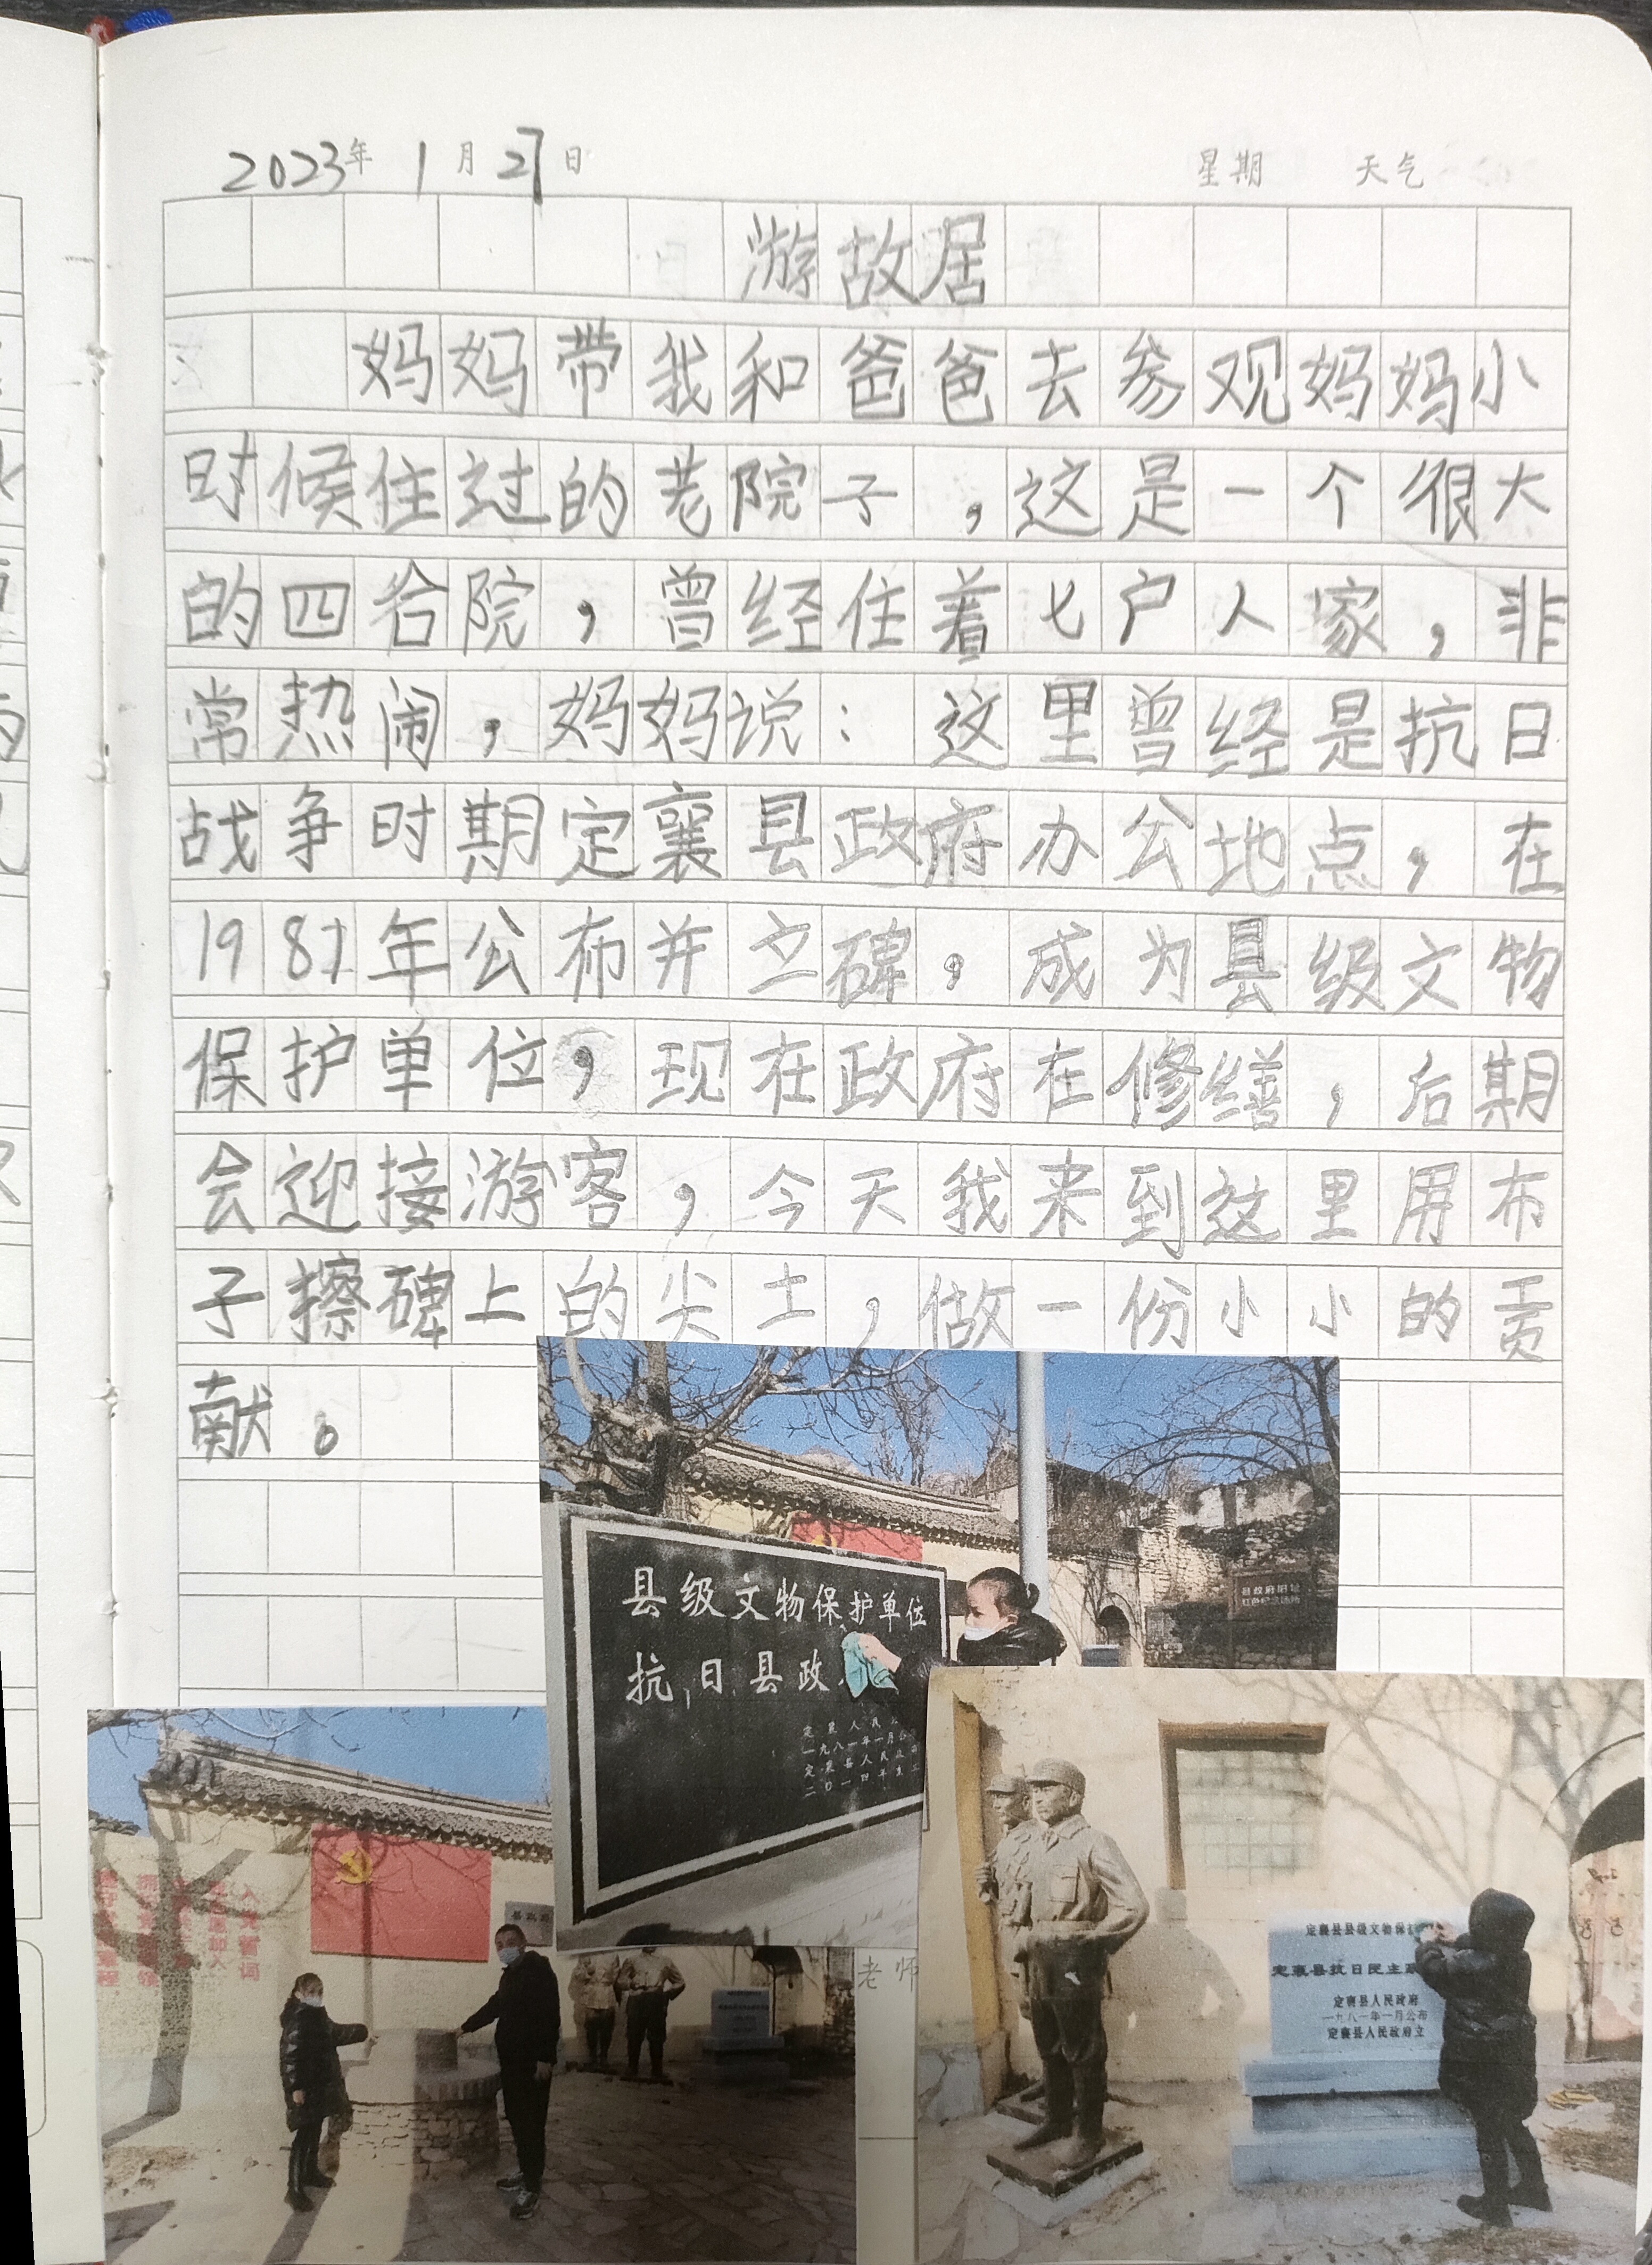 2023年 1月27日 星期 天气
游故居
妈妈带我和爸爸去参观妈妈小
时候住过的老院子,这是一个很大
的四合院,曾经住着七户人家,非
常热闹,妈妈说:这里曾经是抗日
战争时期定襄县政府办公地点,在
1981年公布并立碑,成为县级文物
保护单位,现在政府在修缮,后期
会迎接游客,今天我来到这里用布
子擦碑上的尖土,做一份小小的贡
献。
县级文物保护单位
抗日县政
县政府旧址
入党誓词
老师
定襄县县级文物保
定襄县抗日民主政
定襄县人民政府
一九八一年一月公布
定襄县人民政府立